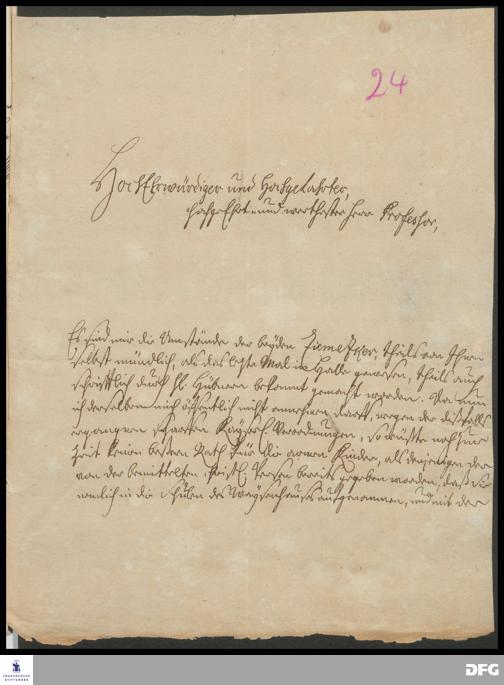 24
HochEhrwürdiger und Hochgelahrter,
hochgeEhrt- und werthester Herr Professor,
Es sind mir die Umstände der beyden theils von Ihnen
selbst mündlich, als das letzte Mal in Halle gewesen, theils auch
schrifftlich durch H. bekannt gemacht worden. Da nun
ich derselben mich öffentlich nicht annehmen darff, wegen der dißfalls
ergangenen scharffen Kayserl. Verordnungen, so wüste noch zur
Zeit keinen bessern Rath für die armen Kinder, als denjenigen der
von der bemittelten Person bereits gegeben worden, daß Sie
nemlich in die Schulen des Waysenhauses aufgenommen, und mit der
FRANCKESCHE
STIFTUNGEN
DFG